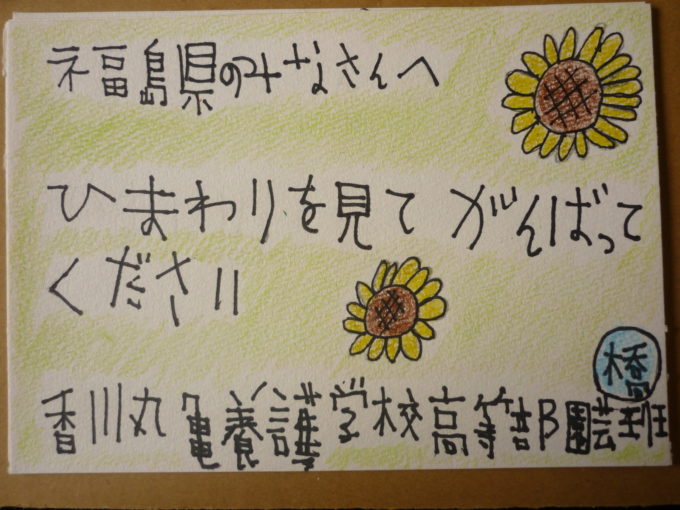 福島県のみなさんへ
ひまわりを見て がんばって
ください
橋
香川丸亀養護学校高等部園芸班